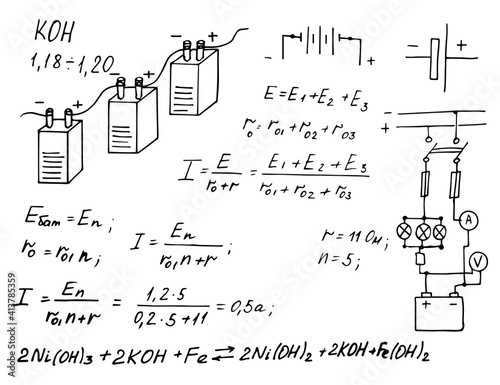 KOH
1,18÷1,20
- + - + - +
- +
- +
E = E1 + E2 + E3
r0 = r01 + r02 + r03
+
-
I = E / r0 + r = E1 + E2 + E3 / r01 + r02 + r03
A
V
+ -
Eбат = En;
r0 = r01 n;
I = En / r01 n + r;
r = 11 Ом;
n = 5;
I = En / r01 n + r = 1,2·5 / 0,2·5+11 = 0,5a;
2Ni(OH)3 + 2KOH + Fe ⇄ 2Ni(OH)2 + 2KOH + Fe(OH)2
#413785359